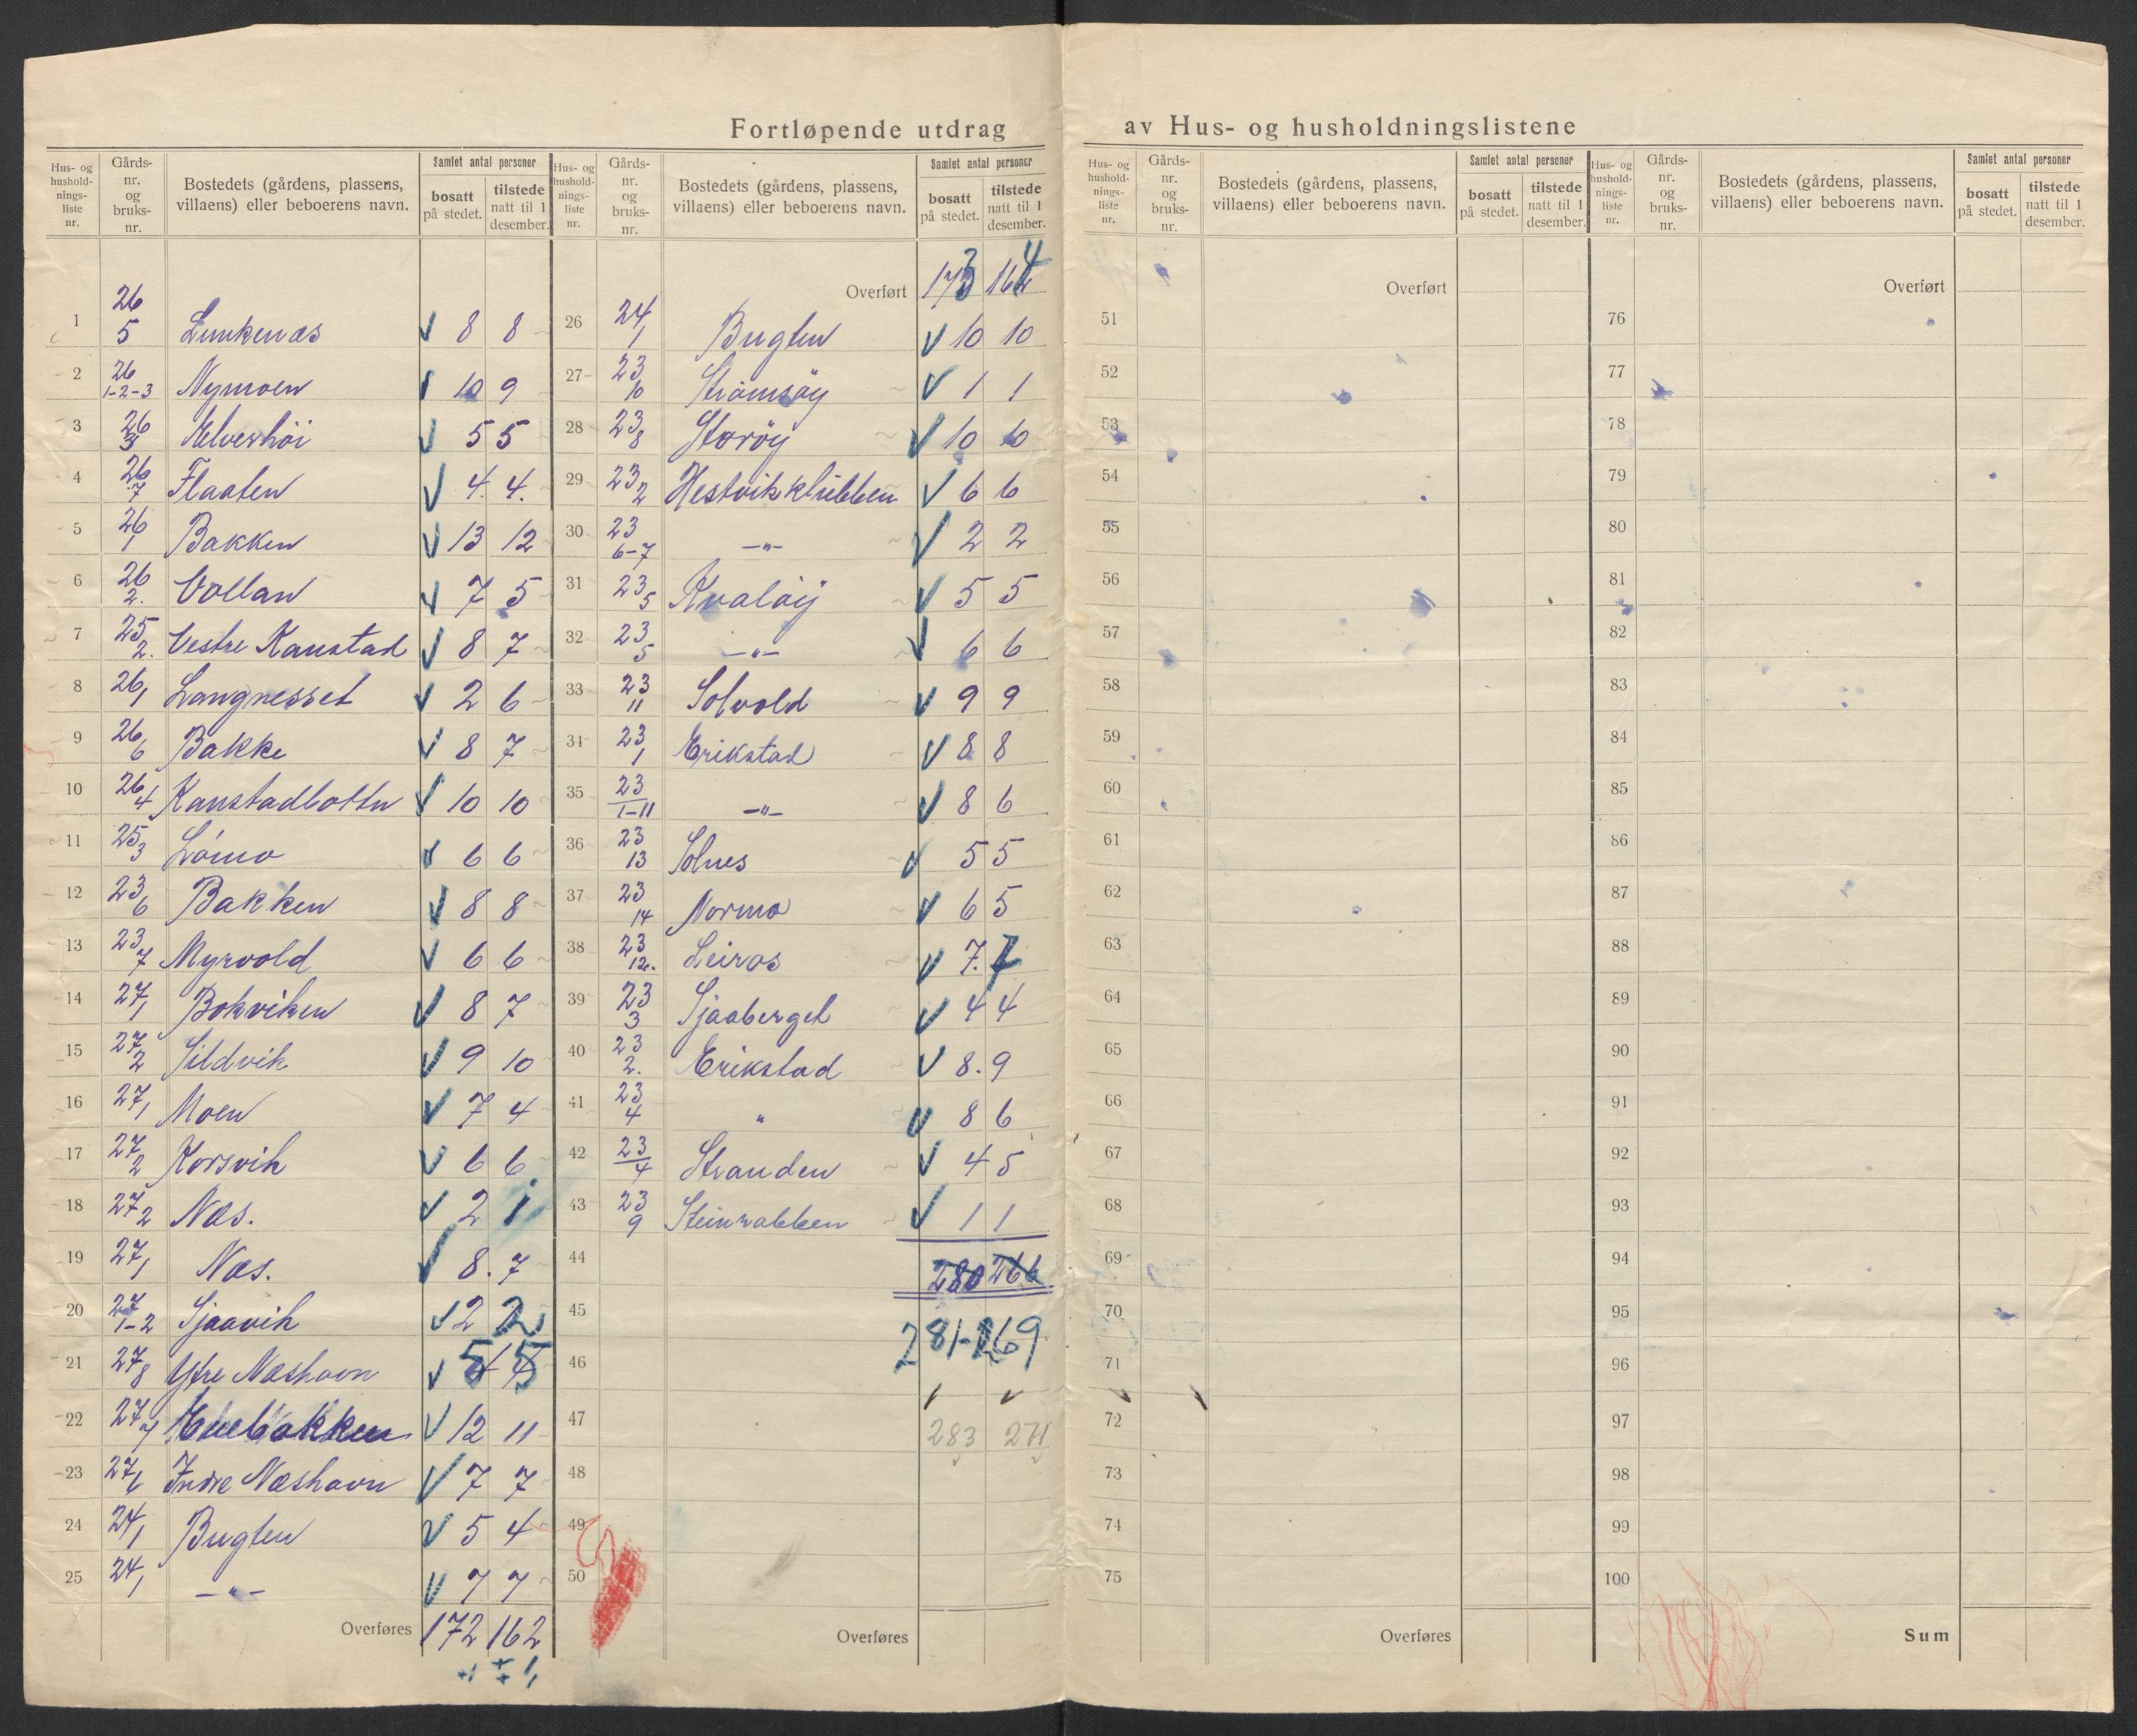 Fortløpende utdrag av Hus- og husholdningslistene
Hus- og hushold-nings-liste nr. Gårds-nr. og bruks-nr. Bostedets (gårdens, plassens, villaens) eller beboerens navn. Samlet antal personer bosatt på stedet. tilstede natt til 1 desember.
1 26 5 Lunkenæs 8 8
2 26 1-2-3 Nymoen 10 9
3 26 3 Elverhöi 5 5
4 26 7 Flaaten 4. 4.
5 26 1 Bakken 13 12
6 26 2. Vollan 7 5
7 25 2. Vestre Kanstad 8 7
8 26 1 Langnesset 2 6
9 26 6 Bakke 8 7
10 26 4 Kanstadbottn 10 10
11 25 3 Lömo 6 6
12 23 6 Bakken 8 8
13 23 7 Myrvold 6 6
14 27 1 Bokviken 8 7
15 27 2 Sildvik 9 10
16 27 1 Moen 7 4
17 27 2 Korsvik 6 6
18 27 2 Næs. 2 1
19 27 1 Næs. 8. 7
20 27 1-2 Sjaavik 2 2
21 27 8 Ytre Næshavn 5 5
22 27 7 12 11
23 27 6 Indre Næshavn 7 7
24 24 1 Bugten 5 4
25 24 1 —„— 7 7
Overføres 172 162
+1 +1
Hus- og hushold-nings-liste nr. Gårds-nr. og bruks-nr. Bostedets (gårdens, plassens, villaens) eller beboerens navn. Samlet antal personer bosatt på stedet. tilstede natt til 1 desember.
Overført 173 164
26 24 1 Bugten 10 10
27 23 10 Strömsöy 1 1
28 23 8 Storöy 10 10
29 23 2 Hestvikklubben 6 6
30 23 6-7 —„— 2 2
31 23 5 Kvalöy 5 5
32 23 5 —„— 6 6
33 23 11 Solvold 9 9
34 23 1 Erikstad 8 8
35 23 1-11 —„— 8 6
36 23 13 Solnes 5 5
37 23 14 Normo 6 5
38 23 12. Leiros 7. 7
39 23 3 Sjaaberget 4 4
40 23 2. Erikstad 8. 9
41 23 4 „ 8 6
42 23 4 Stranden 4 5
43 23 9 Steinrabben 1 1
44 280 266
45 281-269
46
47 283 271
48
49
50
Overføres
Hus- og hushold-nings-liste nr. Gårds-nr. og bruks-nr. Bostedets (gårdens, plassens, villaens) eller beboerens navn. Samlet antal personer bosatt på stedet. tilstede natt til 1 desember.
Overført
51
52
53
54
55
56
57
58
59
60
61
62
63
64
65
66
67
68
69
70
71
72
73
74
75
Overføres
Hus- og hushold-nings-liste nr. Gårds-nr. og bruks-nr. Bostedets (gårdens, plassens, villaens) eller beboerens navn. Samlet antal personer bosatt på stedet. tilstede natt til 1 desember.
Overført
76
77
78
79
80
81
82
83
84
85
86
87
88
89
90
91
92
93
94
95
96
97
98
99
100
Sum